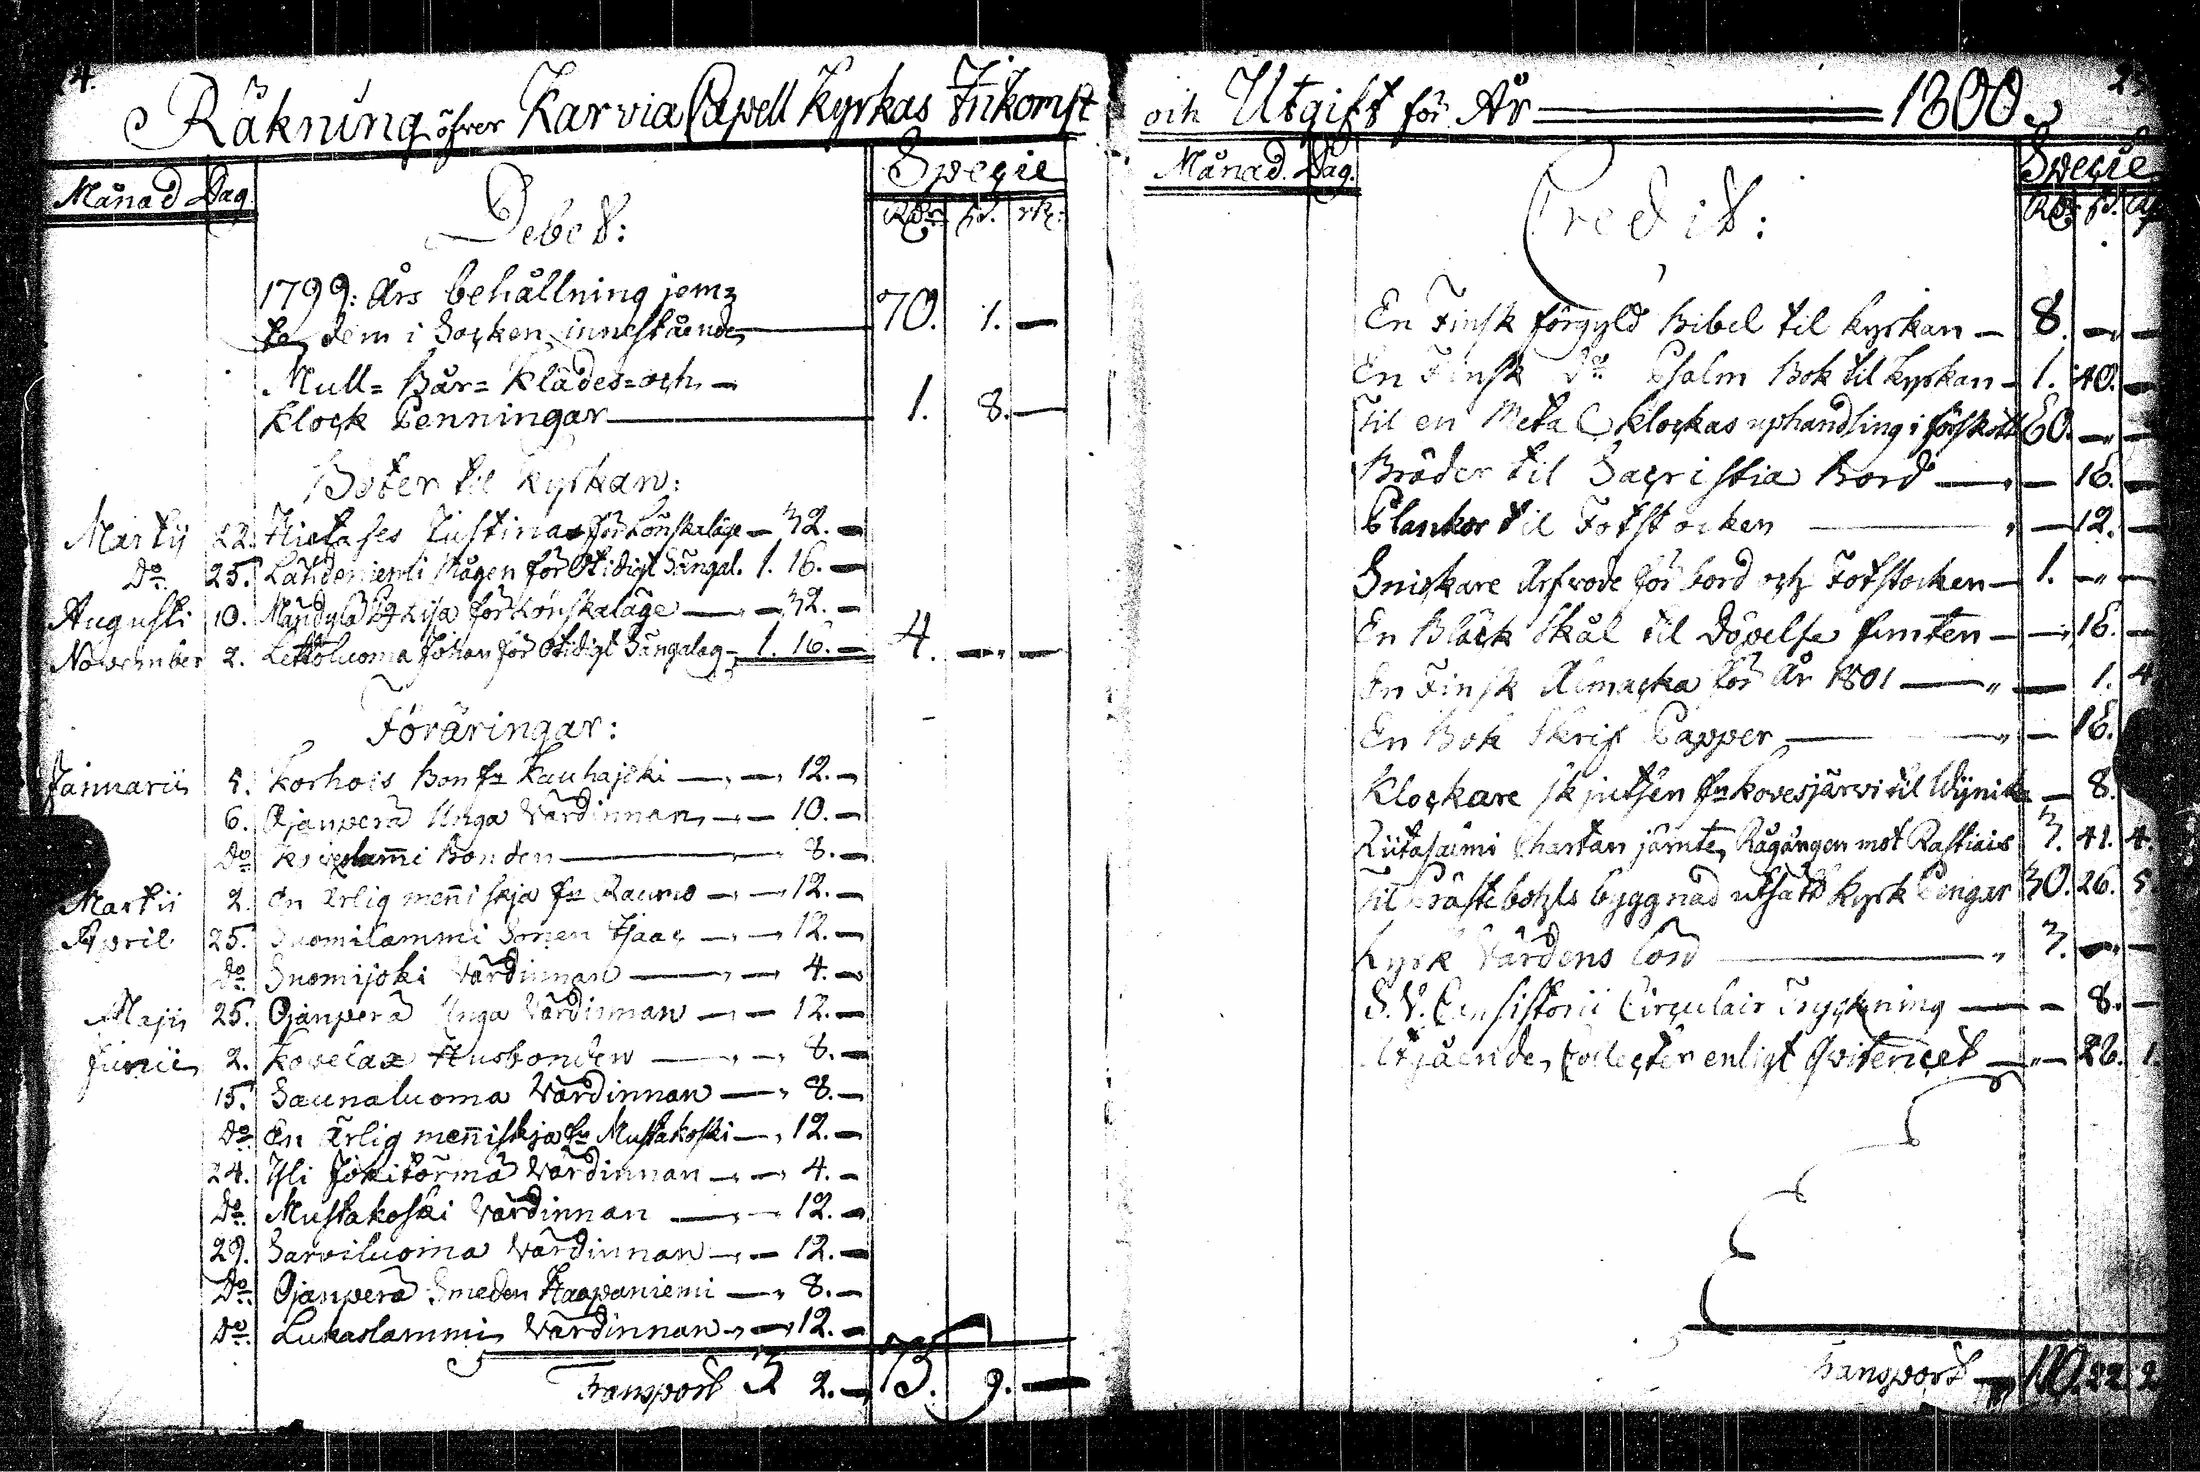 4.
Räkning öfwer Karvia Capell Kyrkas Inkomst
Månad Dag. Specie
Debet: Rdr ß. rß:
1799: Års behållning jem=
te dem i Socken innestående 70. 1. —
Mull= Bår= Klädes= och —
Klock Penningar 1. 8. —
Böter til Kyrkan:
Martij 22. Hietases Justina för Lönskaläge — 32. —
Do 25. Lähdeniemi Mågen för Otidigt Sängal. 1. 16. —
Augusti 10. Mändylä Pg Lisa för Lönskaläge — 32. —
November 2. Lettoluoma Johan för Otidigt Sängalag — 1. 16. — 4. — —
Föräringar:
Januarii 5. Korhois Bon fr Kauhajoki — 12. —
6. Ojanperä Unga Värdinnan — 10. —
Do Bonden — 8. —
Martii 2. En ärlig menniskja fr Raumo — 12. —
April 25. Suomilammi Sonen Isaac — 12. —
Do Suomijoki Värdinnan — 4. —
Maji 25. Ojanperä Unga Värdinnan — 12. —
Junii 2. Kovelax Husbonden — 8. —
15. Saunaluoma Värdinnan — 8. —
Do En ärlig menniskja fr Mustakoski — 12. —
24. Yli Jokitörmä Värdinnan — 4. —
Do Mustakoski Värdinnan — 12. —
29. Sarviluoma Värdinnan — 12. —
Do Ojanperä Smeden Haapaniemi — 8. —
Do Lukaslammi Värdinnan — 12. —
Transport 3 2. — 75. 9. —
och Utgift för År 1800.
Månad. Dag. Specie
Credit: Rdr ß. rß
En Finsk förgyld Bibel til Kyrkan — 8. — —
En Finsk Do Psalm Bok til Kyrkan — 1. 40. —
Til en Metal Klockas uphandling i förskott 60. — —
Bräder til Sacristia Bord — 16. —
Plankor til Fotstocken — 12. —
Snickare Arfvode för bord och Fotstocken — 1. — —
En Bläck Skål til Döpelse funten — 16. —
En Finsk Almacka för År 1801 — 1. 4
En Bok Skrif Papper — 16.
Klockare skjutsen fr Kovesjärvi til — 8.
Riitasalmi Chartan jämte Rågången mot Rastiais 3. 41. 4.
Til Prästebohls byggnad utsatt Kyrk Pengar 30. 26. 5
Kyrk Värdens lön 3. — —
S. V. Consistorii Circulair Tryckning — 8. —
Utgående Collecter enligt Qvitencet — 26. 1.
Transport — 110. 22 2